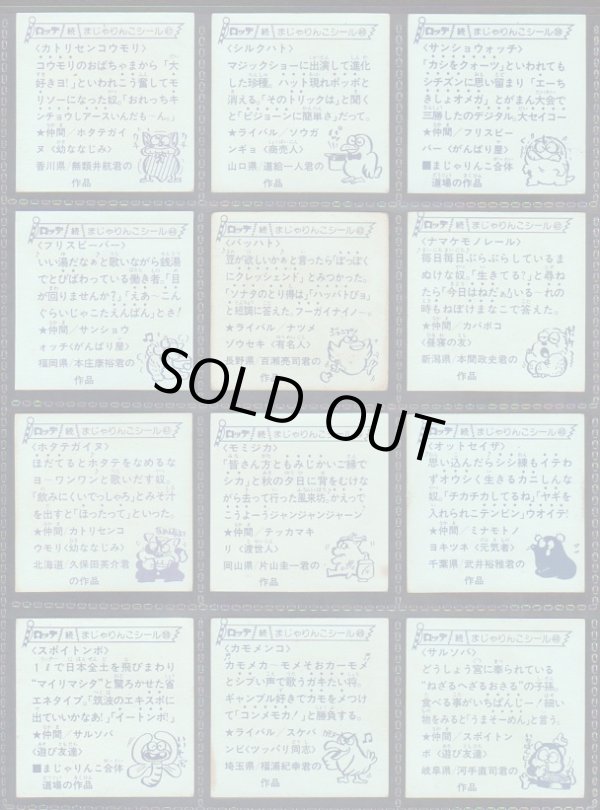 ロッテ 続 まじゃりんこシール
<カトリセンコウモリ>
コウモリのおばちゃまから「大
好きヨ!」といわれこう奮してモ
リソーになった奴。「おれっちキ
ンチョウしアースいんだも〜ん。」
★仲間/ホタテガイ
ヌ<幼ななじみ>
香川県/無類井航君の
作品
ロッテ 続 まじゃりんこシール
<シルクハト>
マジックショーに出演して進化
した珍種。ハット現れポッポと
消える。「そのトリックは」と聞く
と「ピジョーンに簡単さ」だって。
★ライバル/ソウガ
ンギョ<商売人>
山口県/道絵一人君の
作品
ロッテ 続 まじゃりんこシール
<サンショウォッチ>
「カシをクォーツ」といわれても
シチズンに思い留まり「エーち
きしょオメガ」とがまん大会で
三勝したのデジタル。大セイコー
★仲間/フリスビー
バー<がんばり屋>
■まじゃりんこ合体
道場の作品
ロッテ 続 まじゃりんこシール
<フリスビーバー>
いい湯だなぁと歌いながら銭湯
でとびばわっている働き者。「目
が回りませんか?」「えあ〜こん
ぐらいじゃこたえんばん」とさ!
★仲間/サンショウ
ォッチ<がんばり屋>
福岡県/本庄康裕君の
作品
ロッテ 続 まじゃりんこシール
<バッハト>
豆が欲しいかぁと言ったら「ぽっぽく
にクレッシェンド」とみつかった。
「ソナタのとり得は」「ハッバトぴョ」
と短調に答えた。フーガイナイノ〜。
★ライバル/ナツメ
ゾウセキ<有名人>
長野県/百瀬亮司君の
作品
ロッテ 続 まじゃりんこシール
<ナマケモノレール>
毎日毎日ぶらぶらしているま
ぬけな奴。「生きてる?」と尋ね
たら「今日はねだぁ」いる〜れの
時もねぼけまなこで答えた。
★仲間/カバボコ
<昼寝の友>
新潟県/本間政史君の
作品
SOLD OUT
ロッテ 続 まじゃりんこシール
<ホタテガイヌ>
ほだてるとホタテをなめるな
ヨーワンワンと歌いだす奴。
「飲みにくいでっしゃろ」とみそ汁
を出すと「ほったって」といった。
★仲間/カトリセンコ
ウモリ<幼ななじみ>
北海道/久保田英介君
の作品
ロッテ 続 まじゃりんこシール
<モミジカ>
「皆さん方ともみじかいご縁で
シカ」と秋の夕日に背をむけな
がら去って行った風来坊。かえって
こうようージャンジャンジャーン
★仲間/テッカマキ
リ<渡世人>
岡山県/片山圭一君の
作品
ロッテ 続 まじゃりんこシール
<オットセイザ>
思い込んだらシシ練もイテわ
ずオウシく生きるカニしんな
奴。「チカチカしてるね」「ヤギを
入れられこテンビン」ウオイデ!
★仲間/ミナモトノ
ヨキツネ<元気者>
千葉県/武井裕雅君の
作品
ロッテ 続 まじゃりんこシール
<スポイトンボ>
1ℓで日本全土を飛びまわり
“マイリマシタ”と驚ろかせた省
エネタイプ。「筑波のエキスポに
出ていいかなあ!」「イートンボ」
★仲間/サルソバ
<遊び友達>
■まじゃりんこ合体
道場の作品
ロッテ 続 まじゃりんこシール
<カモメンコ>
カモメカ〜モメそおカーモメ
とシブい声で歌うガキたい将。
ギャンブル好きでカモをメつけ
て「コンメモカ!」と勝負する。
★ライバル/スケバ
ンビ<ツッパリ同志>
埼玉県/福浦紀幸君の
作品
ロッテ 続 まじゃりんこシール
<サルソバ>
どうしょう宮に奉られている
“ねざるへざるおさる”の子孫。
食べる事がいちばんじー!細い
物をみるとどうまそーめん」と言う。
★仲間/スポイトン
ボ<遊び友達>
岐阜県/河手直司君の
作品